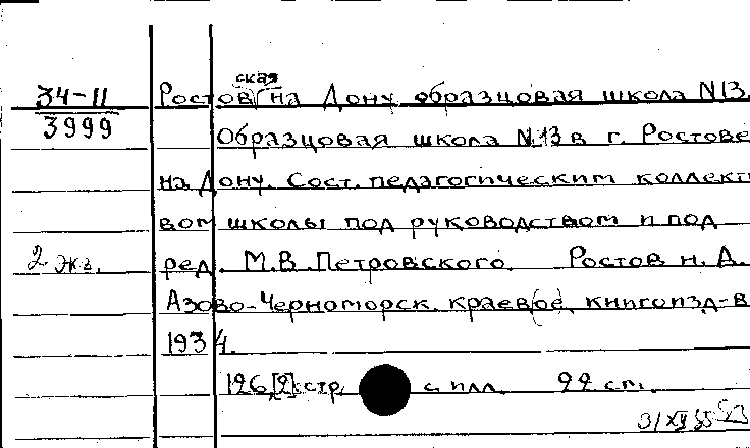 34-11
3999
Ростов ская на Дону образцовая школа N13.
Образцовая школа N13 в г. Ростове
на Дону. Сост. педагогическим коллект
вом школы под руководством и под
2 экз.
ред. М.В. Петровского. Ростов н. Д.
Азово-Черноморск. краевое книгоизд-в
1934.
126,[2] стр. с илл. 22 см.